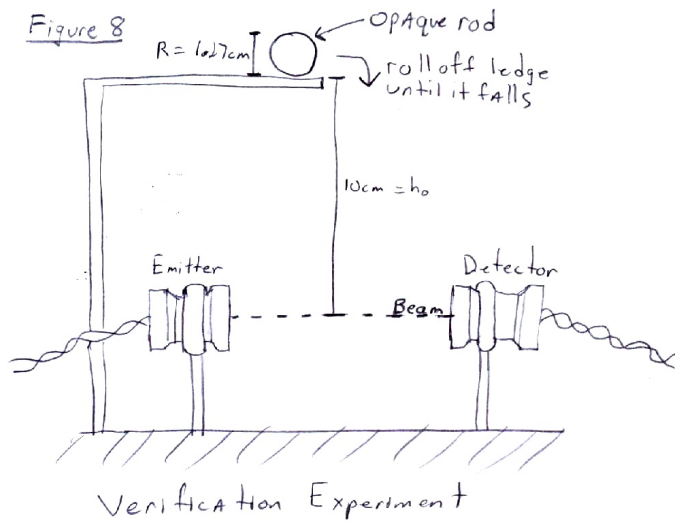 Figure 8
OPAque rod
R = 1.27cm
roll off ledge
until it fAlls
10cm = h₀
Emitter
Detector
Beam
Verification Experiment